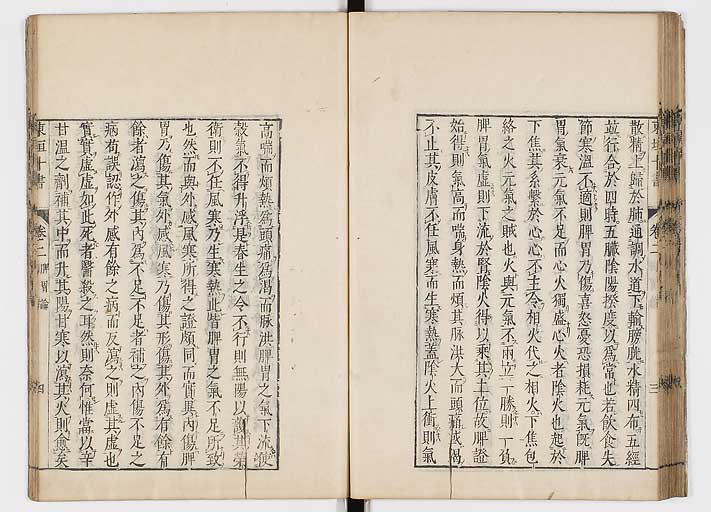 散精上歸於肺通調水道下輸膀胱水精四布五經
並行合於四時五臟陰陽揆度以爲常也若飲食失
節寒溫不適則脾胃乃傷喜怒憂恐損耗元氣既脾
胃氣衰元氣不足而心火獨盛心火者陰火也起於
下焦其系繫於心心不主令相火代之相火下焦包
絡之火元氣之賊也火與元氣不兩立一勝則一負
脾胃氣虛則下流於腎陰火得以乘其土位故脾證
始得則氣高而喘身熱而煩其脉洪大而頭痛或渴
不止其皮膚不任風寒而生寒熱蓋陰火上衝則氣
高喘而煩熱爲頭痛爲渴而脉洪脾胃之氣下流使
穀氣不得升浮是春生之令不行則無陽以護其榮
衛則不任風寒乃生寒熱此皆脾胃之氣不足所致
也然而與外感風寒所得之證頗同而實異內傷脾
胃乃傷其氣外感風寒乃傷其形傷其外爲有餘有
餘者瀉之傷其內爲不足不足者補之內傷不足之
病苟誤認作外感有餘之病而反瀉之則虛其虛也
實實虛虛如此死者醫殺之耳然則奈何惟當以辛
甘溫之劑補其中而升其陽甘寒以瀉其火則愈矣
東垣十書 卷二 脾胃論 四